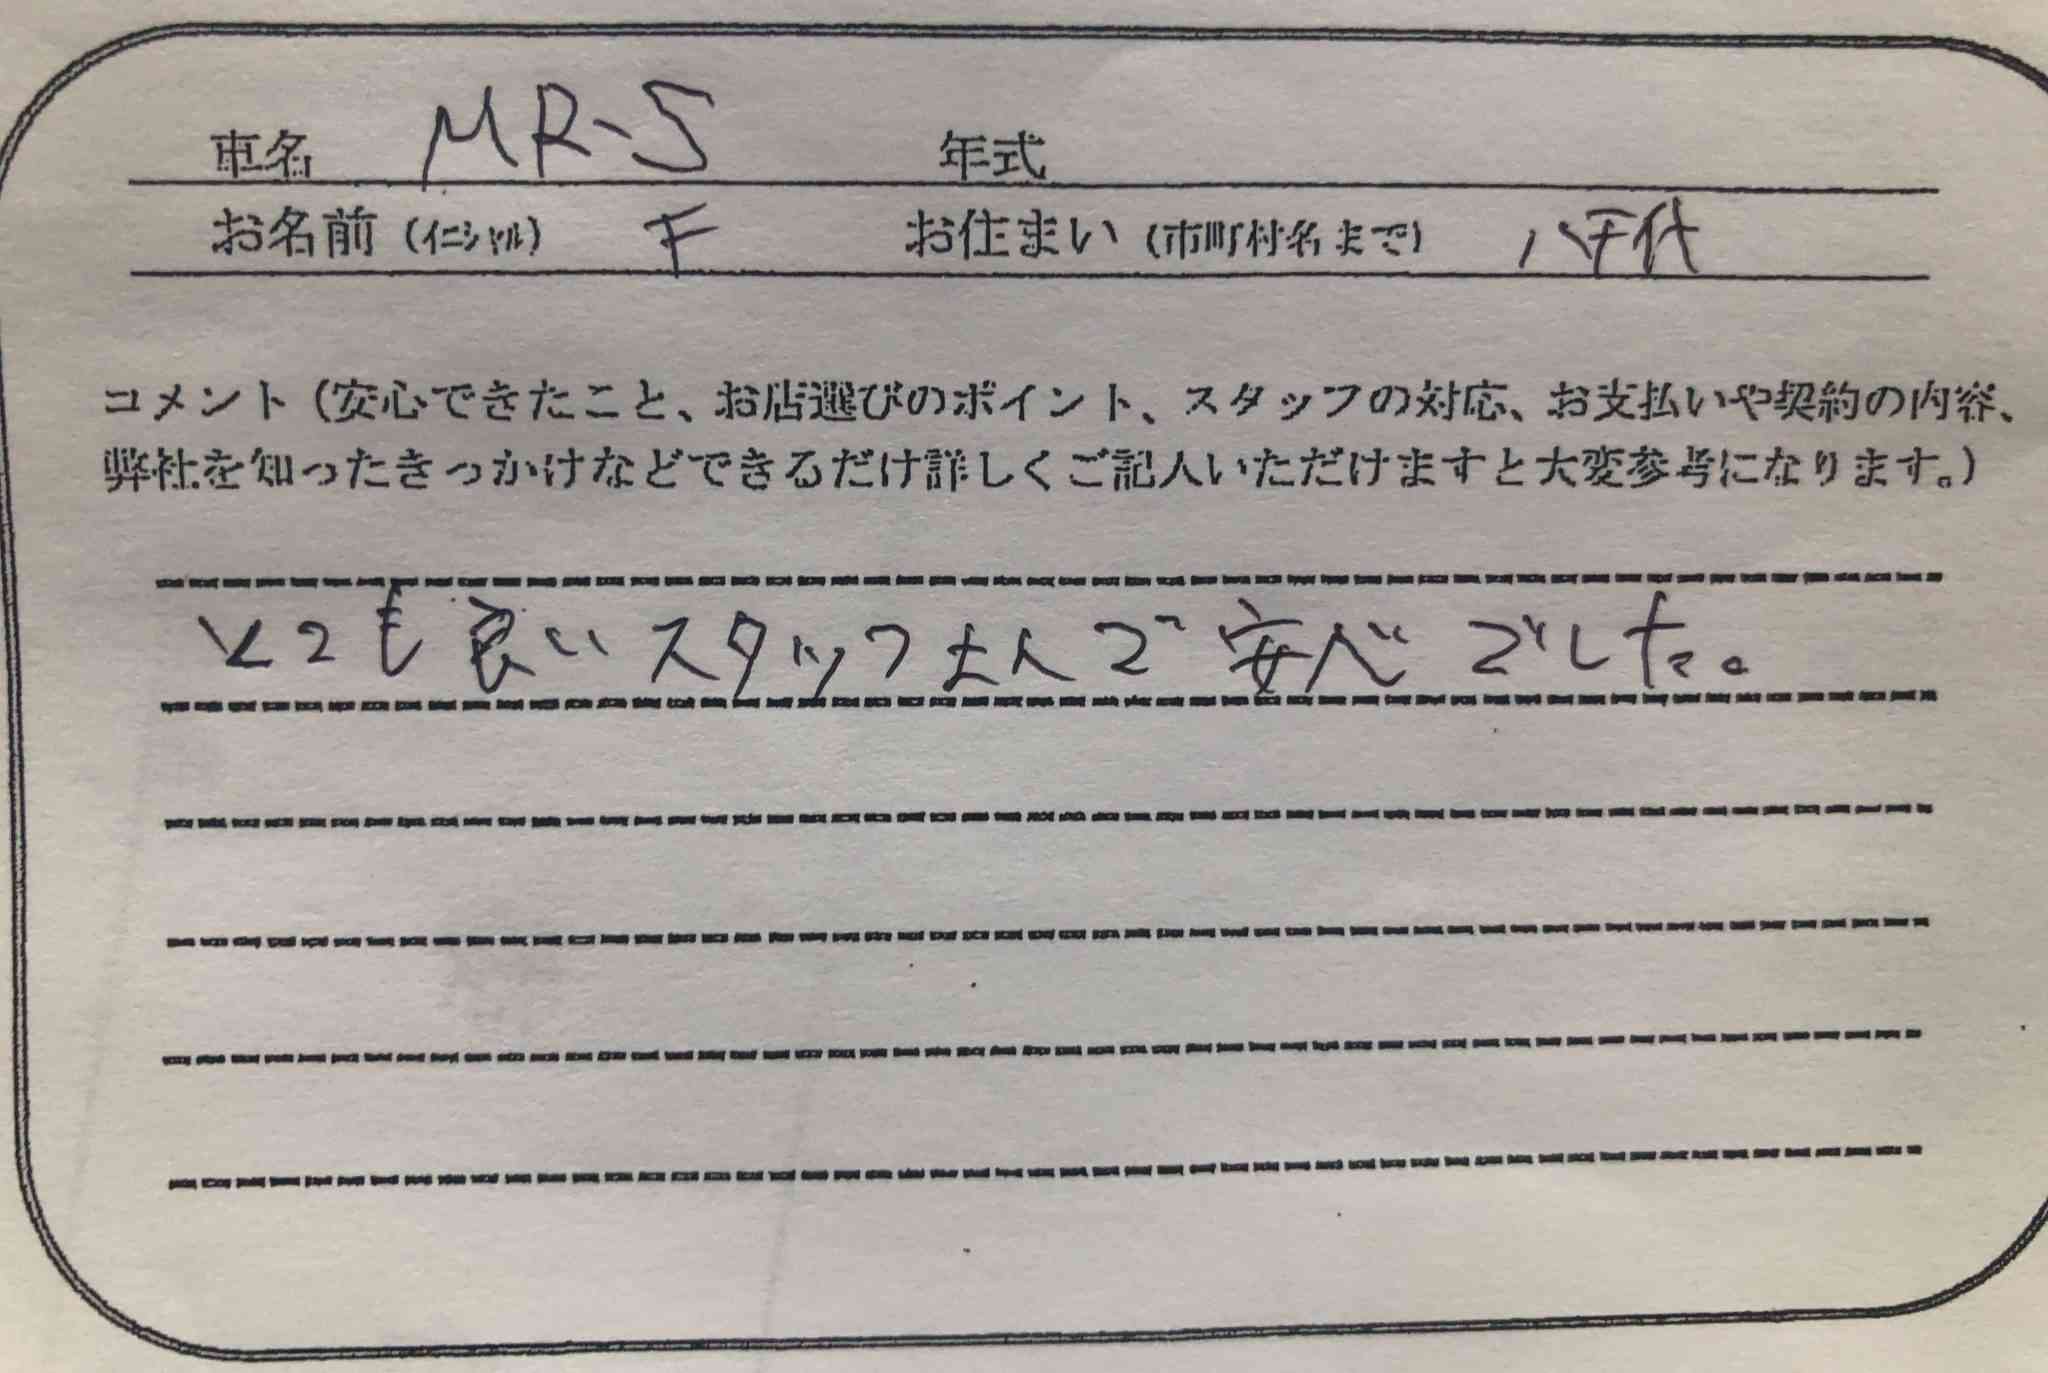 車名 MR-S 年式
お名前(イニシャル) F お住まい(市町村名まで) 八千代
コメント(安心できたこと、お店選びのポイント、スタッフの対応、お支払いや契約の内容、
弊社を知ったきっかけなどできるだけ詳しくご記入いただけますと大変参考になります。)
とても良いスタッフさんで安心でした。